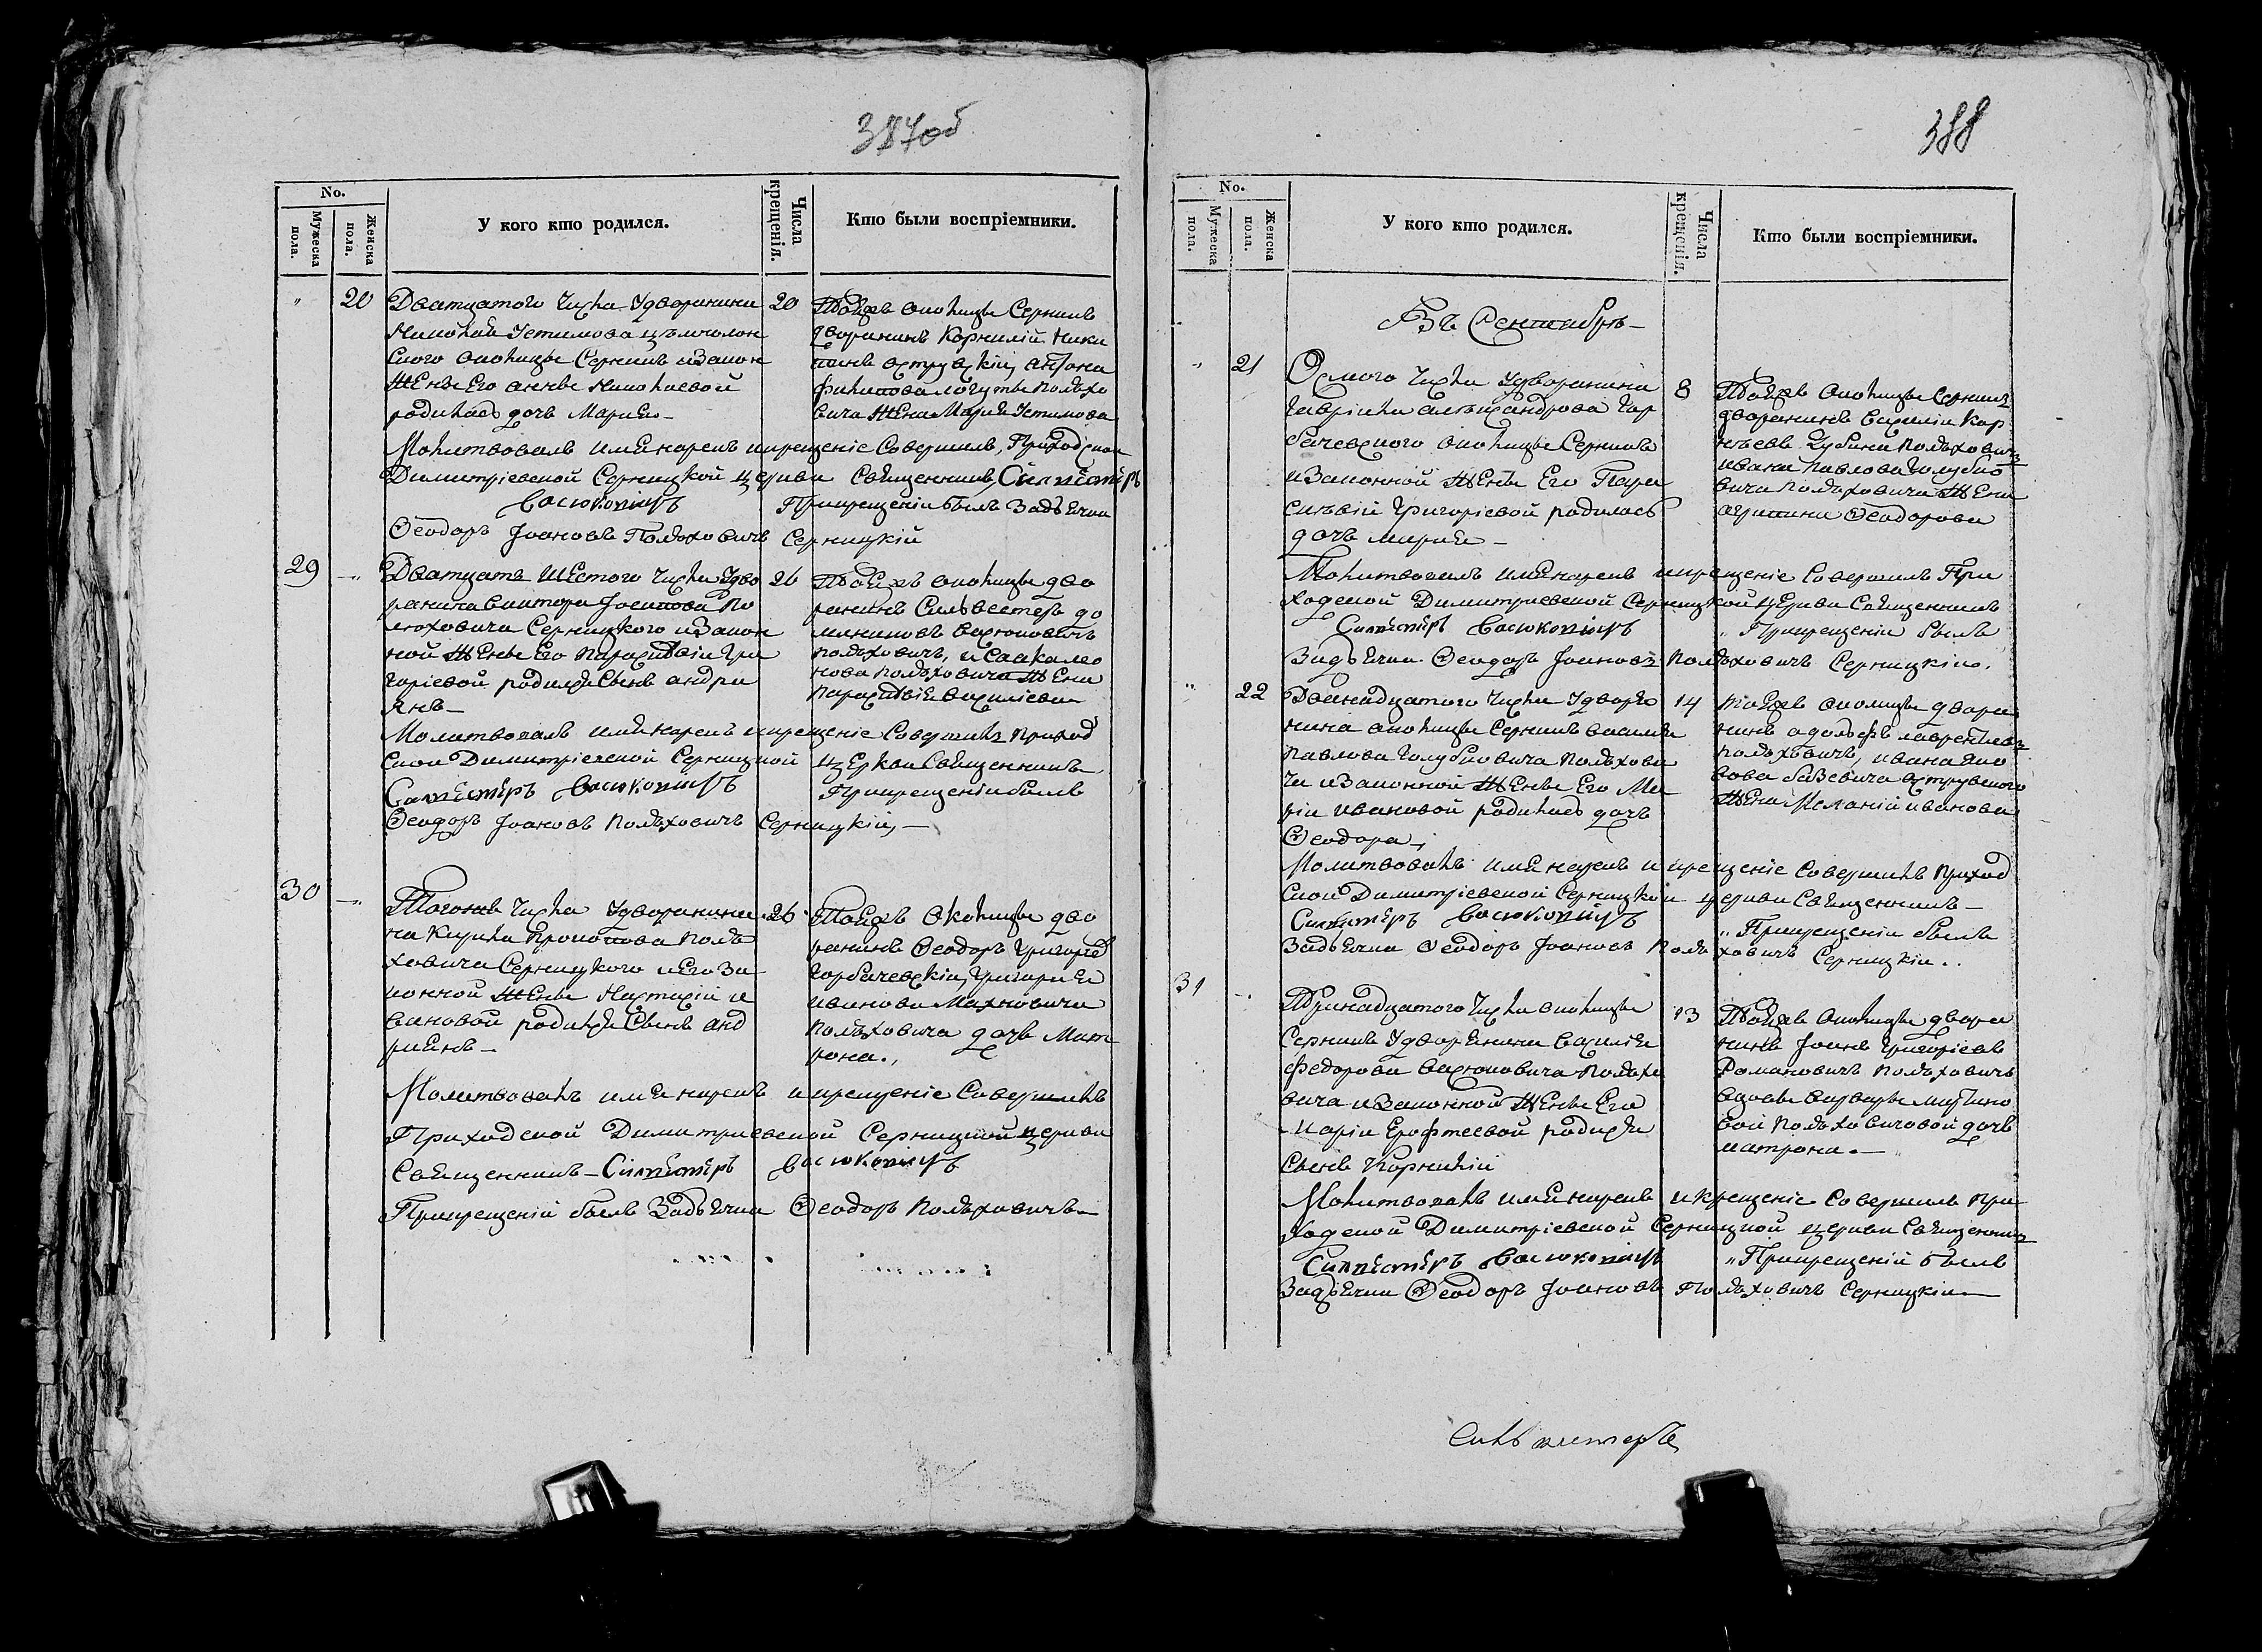 387об
No.
Мужеска пола.
Женска пола.
У кого кто родился.
Числа крещенія.
Кто были воспріемники.
" 20 Дватцатого числа Удворянина 20
Николая Устимова
окольцы Серникъ изакон
женъ Его аннъ Николаевой
родилась дочь Мария
Тоеяжъ околицы Серникъ
дворянинъ Корнилій Ники
антона
Филипова Полѣхо
вича Жена Мария Устимова
Молитвовалъ имя нарекъ икрещеніе Совершилъ, Приходской
Димитріевской Серницкой церкви Священникъ Силвестръ
Васюковичъ Прикрещеніи былъ Задьячка
Ѳеодоръ Іоановъ Полѣховичъ Серницкій
29 -"- Дватцать Шестого числа Удво 26
рянина Виктора Іосипова По
люховича Серницкого изакон
ной Женъ Его Параскѣвіи Гри
горіевой родился Сынъ андри
янъ
Тоеяжъ околицы дво
рянинъ Сильвестеръ до
миниковъ Васюковичъ
полѣховичъ, и
нова полѣховича Жена
Параскѣвія Василіева
Молитвовалъ имя нарекъ икрещеніе Совершилъ приход
ской Димитріевской Серницкой церкви Священникъ
Силвестръ Васюковичъ Прикрещеніи былъ
Ѳеодоръ Іоановъ Полѣховичъ Серницкій
30 -"- Тогожъ числа Удворянина 26
на Кирила Прокопова Полѣ
ховича Серницкого иЕго за
конной Женъ Настасіи и
вановой родился Сынъ анд
риянъ
Тоеяжъ Околицы дво
рянинъ Ѳеодоръ Григоріев
Горбачевскій, Григория
иванова Махновича
полѣховича дочь Мат
рона.
Молитвовалъ имя нарекъ икрещеніе Совершилъ
Приходской Димитриевской Серницкой церкви
Священникъ Силвестръ Васюковичъ
Прикрещеніи былъ Задьячка Ѳеодоръ Полѣховичъ
388
No.
Мужеска пола.
Женска пола.
У кого кто родился.
Числа крещенія.
Кто были воспріемники.
Въ Сентябрѣ
" 21 Осмого числа Удворянина 8
Гавріила александрова Гор
бачевского околицы Серникъ
изаконной Женъ Его Пара
скѣвіи Григоріевой родилась
дочь мария
Тоеяжъ околицы Серникъ
дворянинъ Василій Кор
нѣевъ полѣховичъ
ивана Павлова Голубно
вича полѣховича Жена
агрипина Ѳеодорова
Молитвовалъ имя нарекъ икрещеніе Совершилъ При
ходской Димитриевской Серницкой Церкви Священникъ
Силвестръ Васюковичъ " Прикрещеніи былъ
Задьячка Ѳеодоръ Іоановъ Полѣховичъ Серницкій.
" 22 Дванадцатого числа Удворя 14
нина околицы Серникъ василия
Павлова Голубновича Полѣхови
ча изаконной Женъ Его Ма
ріи ивановой родилась дочь
Ѳеодора
тоеяжъ околицы дворя
нинъ адольфъ лаврентіевъ
полѣховичъ, ивана
Жена Меланія иванова
Молитвовалъ имя нарекъ икрещеніе Совершилъ приход
ской Димитріевской Серницкой церкви Священникъ
Силвестръ Васюковичъ " Прикрещеніи былъ
Задьячка Ѳеодоръ Іоановъ Полѣховичъ Серницкій..
31 -" Тринадцатого числа околицы 13
Серникъ Удворянина Василія
Федорова Васюковича Полѣхо
вича изаконной Женъ Его
Маріи Ерофтеевой родился
Сынъ Корнилій
Тоеяжъ Околицы дворя
нинъ Іоанъ Григоріевъ
Романовичъ Полѣховичъ
вдовы варвары
вой полѣховичовой дочь
матрона.
Молитвовалъ имя нарекъ икрещеніе Совершилъ при
ходской Димитріевской Серницкой церкви Священникъ
Силвестръ Васюковичъ " Прикрещеніи былъ
Задьячка Ѳеодоръ Іоановъ Полѣховичъ Серницкій